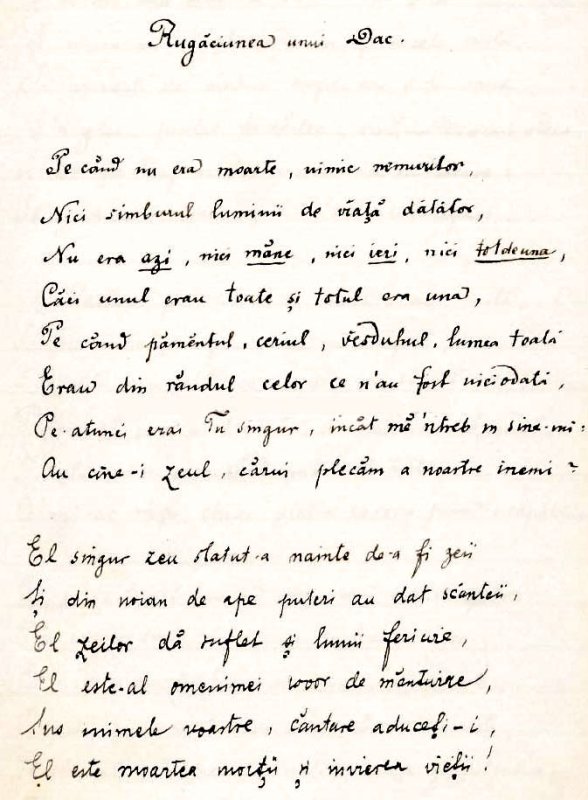 Rugăciunea unui Dac.
Pe când nu era moarte, nimic nemuritor,
Nici simburul luminii de viață dătător,
Nu era azi, nici mâne, nici ieri, nici totdeuna,
Căci unul erau toate și totul era una,
Pe când pământul, ceriul, vesduhul, lumea toată
Erau din rândul celor ce n'au fost niciodată,
Pe-atunci erai Tu singur, încât mă 'ntreb în sine-mi:
Au cine-i zeul, cărui plecăm a noastre inemi?
El singur zeu stătut-a nainte de-a fi zeii
Și din noian de ape puteri au dat scânteii,
El zeilor dă suflet și lumii fericire,
El este-al omenimei isvor de mântuire,
Sus inimele voastre, cântare aduceți-i,
El este moartea morții și învierea vieții!